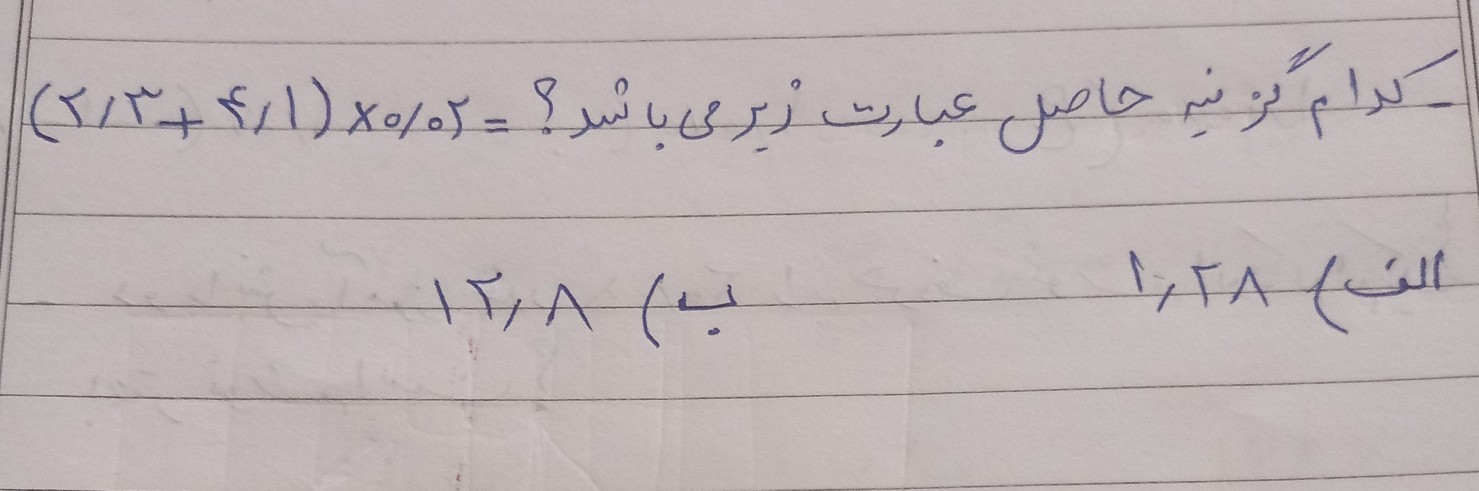 - کدام گزینه حاصل عبارت زیر می باشد؟ = (۲٫۳ + ۴٫۱) × ۰٫۰۲
الف) ۱٫۲۸ ب) ۱۲٫۸